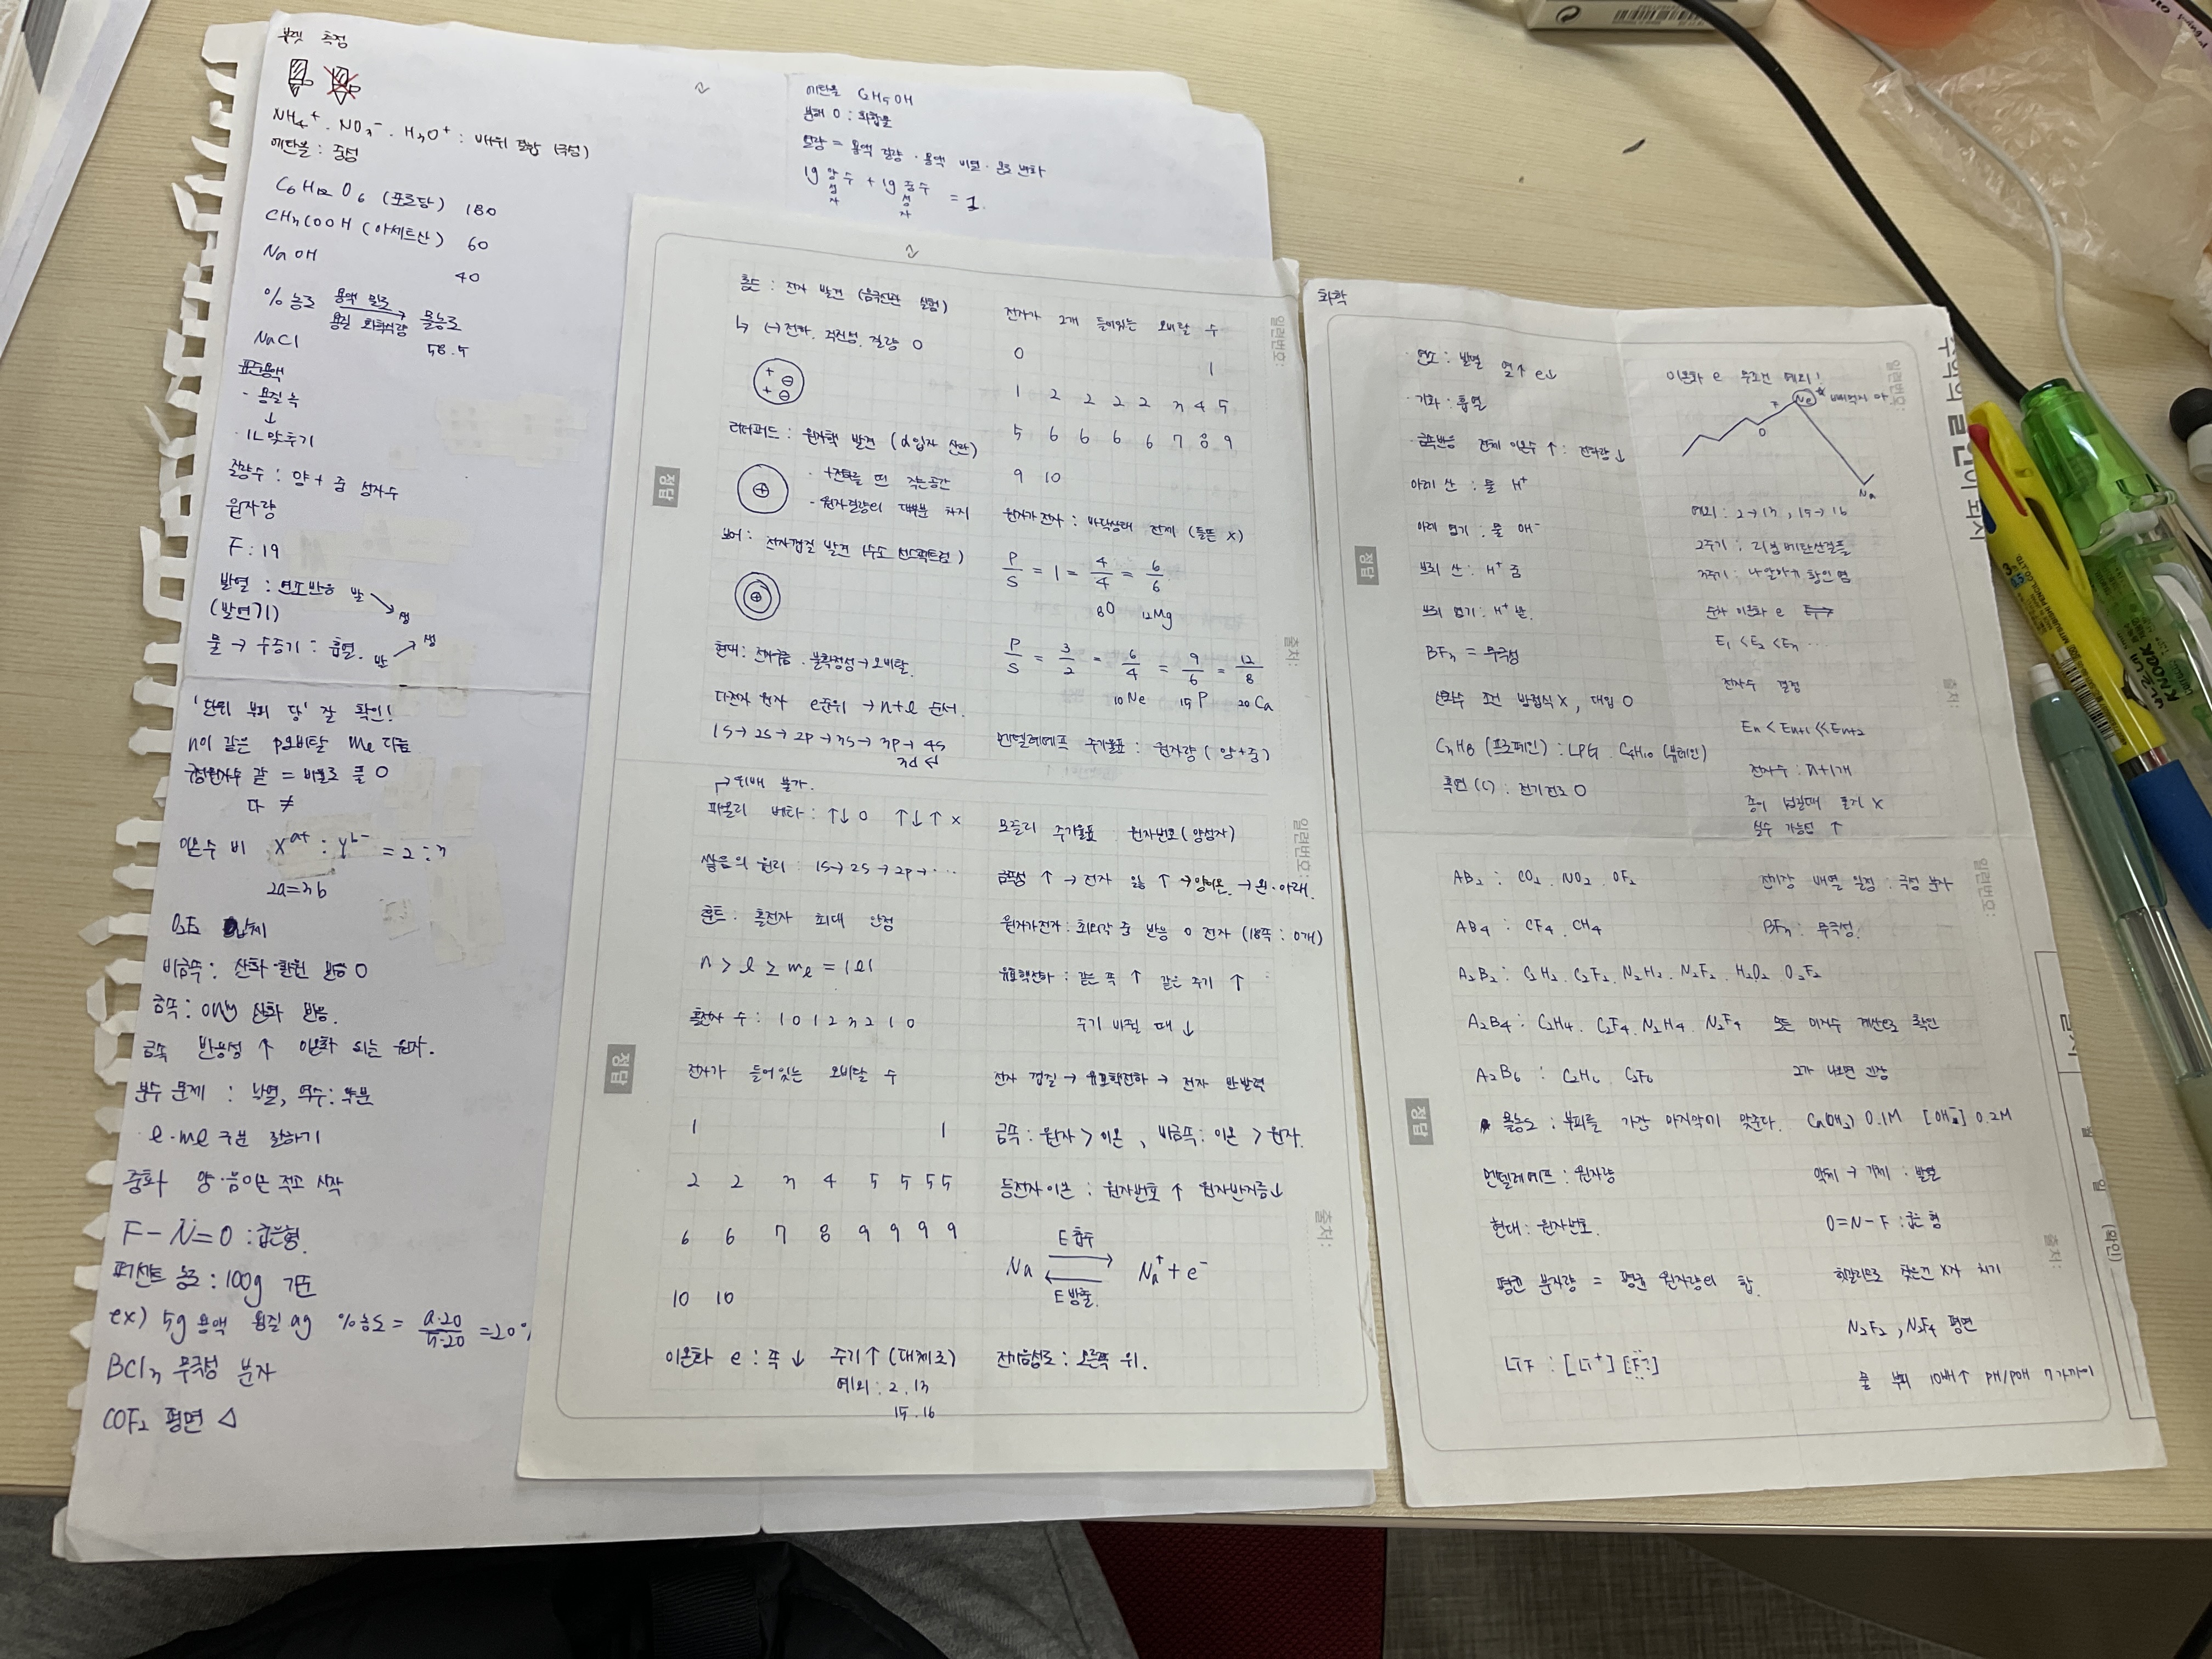 뷰렛 측정
NH₄⁺ . NO₃⁻ . H₃O⁺ : 배위 결합 (극성)
에탄올 : 중성
C₆H₁₂O₆ (포도당) 180
CH₃COOH (아세트산) 60
NaOH 40
% 농도 용액 밀도 → 용질 화학식량 몰농도
NaCl 58.5
표준용액
- 용질 녹
↓
· 1L 맞추기
질량수 : 양 + 중 성자수
원자량
F : 19
발열 : 연소반응 반 ↘ 생
(발연기)
물 → 수증기 : 흡열. 반 ↗ 생
'단위 부피 당' 잘 확인!
n이 같은 p오비탈 ml 다름
구성원자수 같 = 비율로 풀 O
다 ≠
이온수 비 Xᵃ⁺ : Yᵇ⁻ = 2 : 3
2a=3b
O₂F₂ 입체
비금속 : 산화·환원 반응 O
금속 : only 산화 반응.
금속 반응성 ↑ 이온화 되는 원자.
분수 문제 :
l · ml 구분 잘하기
중화 양·음이온 적고 시작
F - N = 0 : 굽은형.
퍼센트 농도 : 100g 기준
ex) 5g 용액 용질 ag %농도 = a·20/5·20 = 20
BCl₃ 무극성 분자
COF₂ 평면 △
에탄올 C₂H₅OH
분해 O : 화합물
열량 = 용액 질량 · 용액 비열 · 온도 변화
1g 양성자 수 + 1g 중성자 수 = 1
톰슨 : 전자 발견 (음극선관 실험)
↳ (-)전하. 직진성. 질량 O
러더퍼드 : 원자핵 발견 (α입자 산란)
· +전하를 띤 작은공간
- 원자질량의 대부분 차지
보어 : 전자껍질 발견 (수소 선스펙트럼)
현대 : 전자구름. 불확정성→오비탈.
다전자 원자 e준위 → n+l 순서.
1s→2s→2p→3s→3p→4s
3d ↲
↱위배 불가.
파울리 베타 : ↑↓ O ↑↓↑ ×
쌓음의 원리 : 1s→2s→2p→ ···
훈트 : 홀전자 최대 안정
n > l ≥ ml = |l|
홀전자 수 : 1 0 1 2 3 2 1 0
전자가 들어있는 오비탈 수
1 1
2 2 3 4 5 5 5 5
6 6 7 8 9 9 9 9
10 10
이온화 e : 족 ↓ 주기 ↑ (대체로)
예외 : 2. 13
15. 16
전자가 2개 들어있는 오비탈 수
0 1
1 2 2 2 2 3 4 5
5 6 6 6 6 7 8 9
9 10
원자가 전자 : 바닥상태 전제 (들뜬 X)
P/S = 1 = 4/4 = 6/6
8O 12Mg
P/S = 3/2 = 6/4 = 9/6 = 12/8
10Ne 15P 20Ca
멘델레예프 주기율표 : 원자량 (양+중)
모즐리 주기율표 원자번호(양성자)
금속성 ↑ → 전자 잃 ↑ → 양이온. → 왼·아래.
원자가전자 : 최외각 중 반응 O 전자 (18족 : 0개)
유효핵전하 : 같은 족 ↑ 같은 주기 ↑
주기 바뀔 때 ↓
전자 껍질 → 유효핵전하 → 전자 반발력
금속 : 원자 > 이온 , 비금속 : 이온 > 원자.
등전자 이온 : 원자번호 ↑ 원자반지름↓
E 흡수
Na ⇄ Na⁺ + e⁻
E 방출.
전기음성도 : 오른쪽 위.
정답
정답
일련번호:
출처:
일련번호:
출처:
화학
· 연소 : 발열 열↑ e↓
· 기화 : 흡열
· 금속반응 전체 이온수 ↑ : 전하량 ↓
아레 산 : 물 H⁺
아레 염기 : 물 OH⁻
브뢰 산 : H⁺ 줌
브뢰 염기 : H⁺ 받.
BF₃ = 무극성
산화수 조건 방정식 X, 대입 O
C₃H₈ (프로페인) : LPG. C₄H₁₀ (뷰테인)
흑연 (C) : 전기전도 O
이온화 e 무조건 예외!
F Ne 빼먹지 마
O
Na
예외 : 2→13 , 15→16
2주기 : 리붕베탄산질플
3주기 : 나알마규황인염
순차 이온화 e
E₁ < E₂ < E₃ ···
전자수 결정
En < En+1 << En+2
전자수 : n+1개
종이 넘길때 풀기 X
실수 가능성 ↑
AB₂ : CO₂. NO₂. OF₂
AB₄ : CF₄. CH₄
A₂B₂ : C₂H₂. C₂F₂. N₂H₂. N₂F₂. H₂O₂ O₂F₂
A₂B₄ : C₂H₄. C₂F₄. N₂H₄. N₂F₄ 모든 미지수 계산으로 확인
A₂B₆ : C₂H₆. C₂F₆
몰농도 : 부피를 가장 마지막에 맞춘다. Ca(OH₂) 0.1M [OH⁻] 0.2M
멘델레예프 : 원자량
현대 : 원자번호.
평균 분자량 = 평균 원자량의 합.
LiF : [Li⁺] [F⁻]
전기장 배열 일정 : 극성 분자
BF₃ : 무극성.
2가 나오면 긴장
액체 → 기체 : 발열
O=N-F : 굽은 형
N₂F₂ , N₂F₄ 평면
물 부피 10배↑ PH/POH 7 가까이
정답
정답
일련번호:
출처:
일련번호:
출처:
(확인)